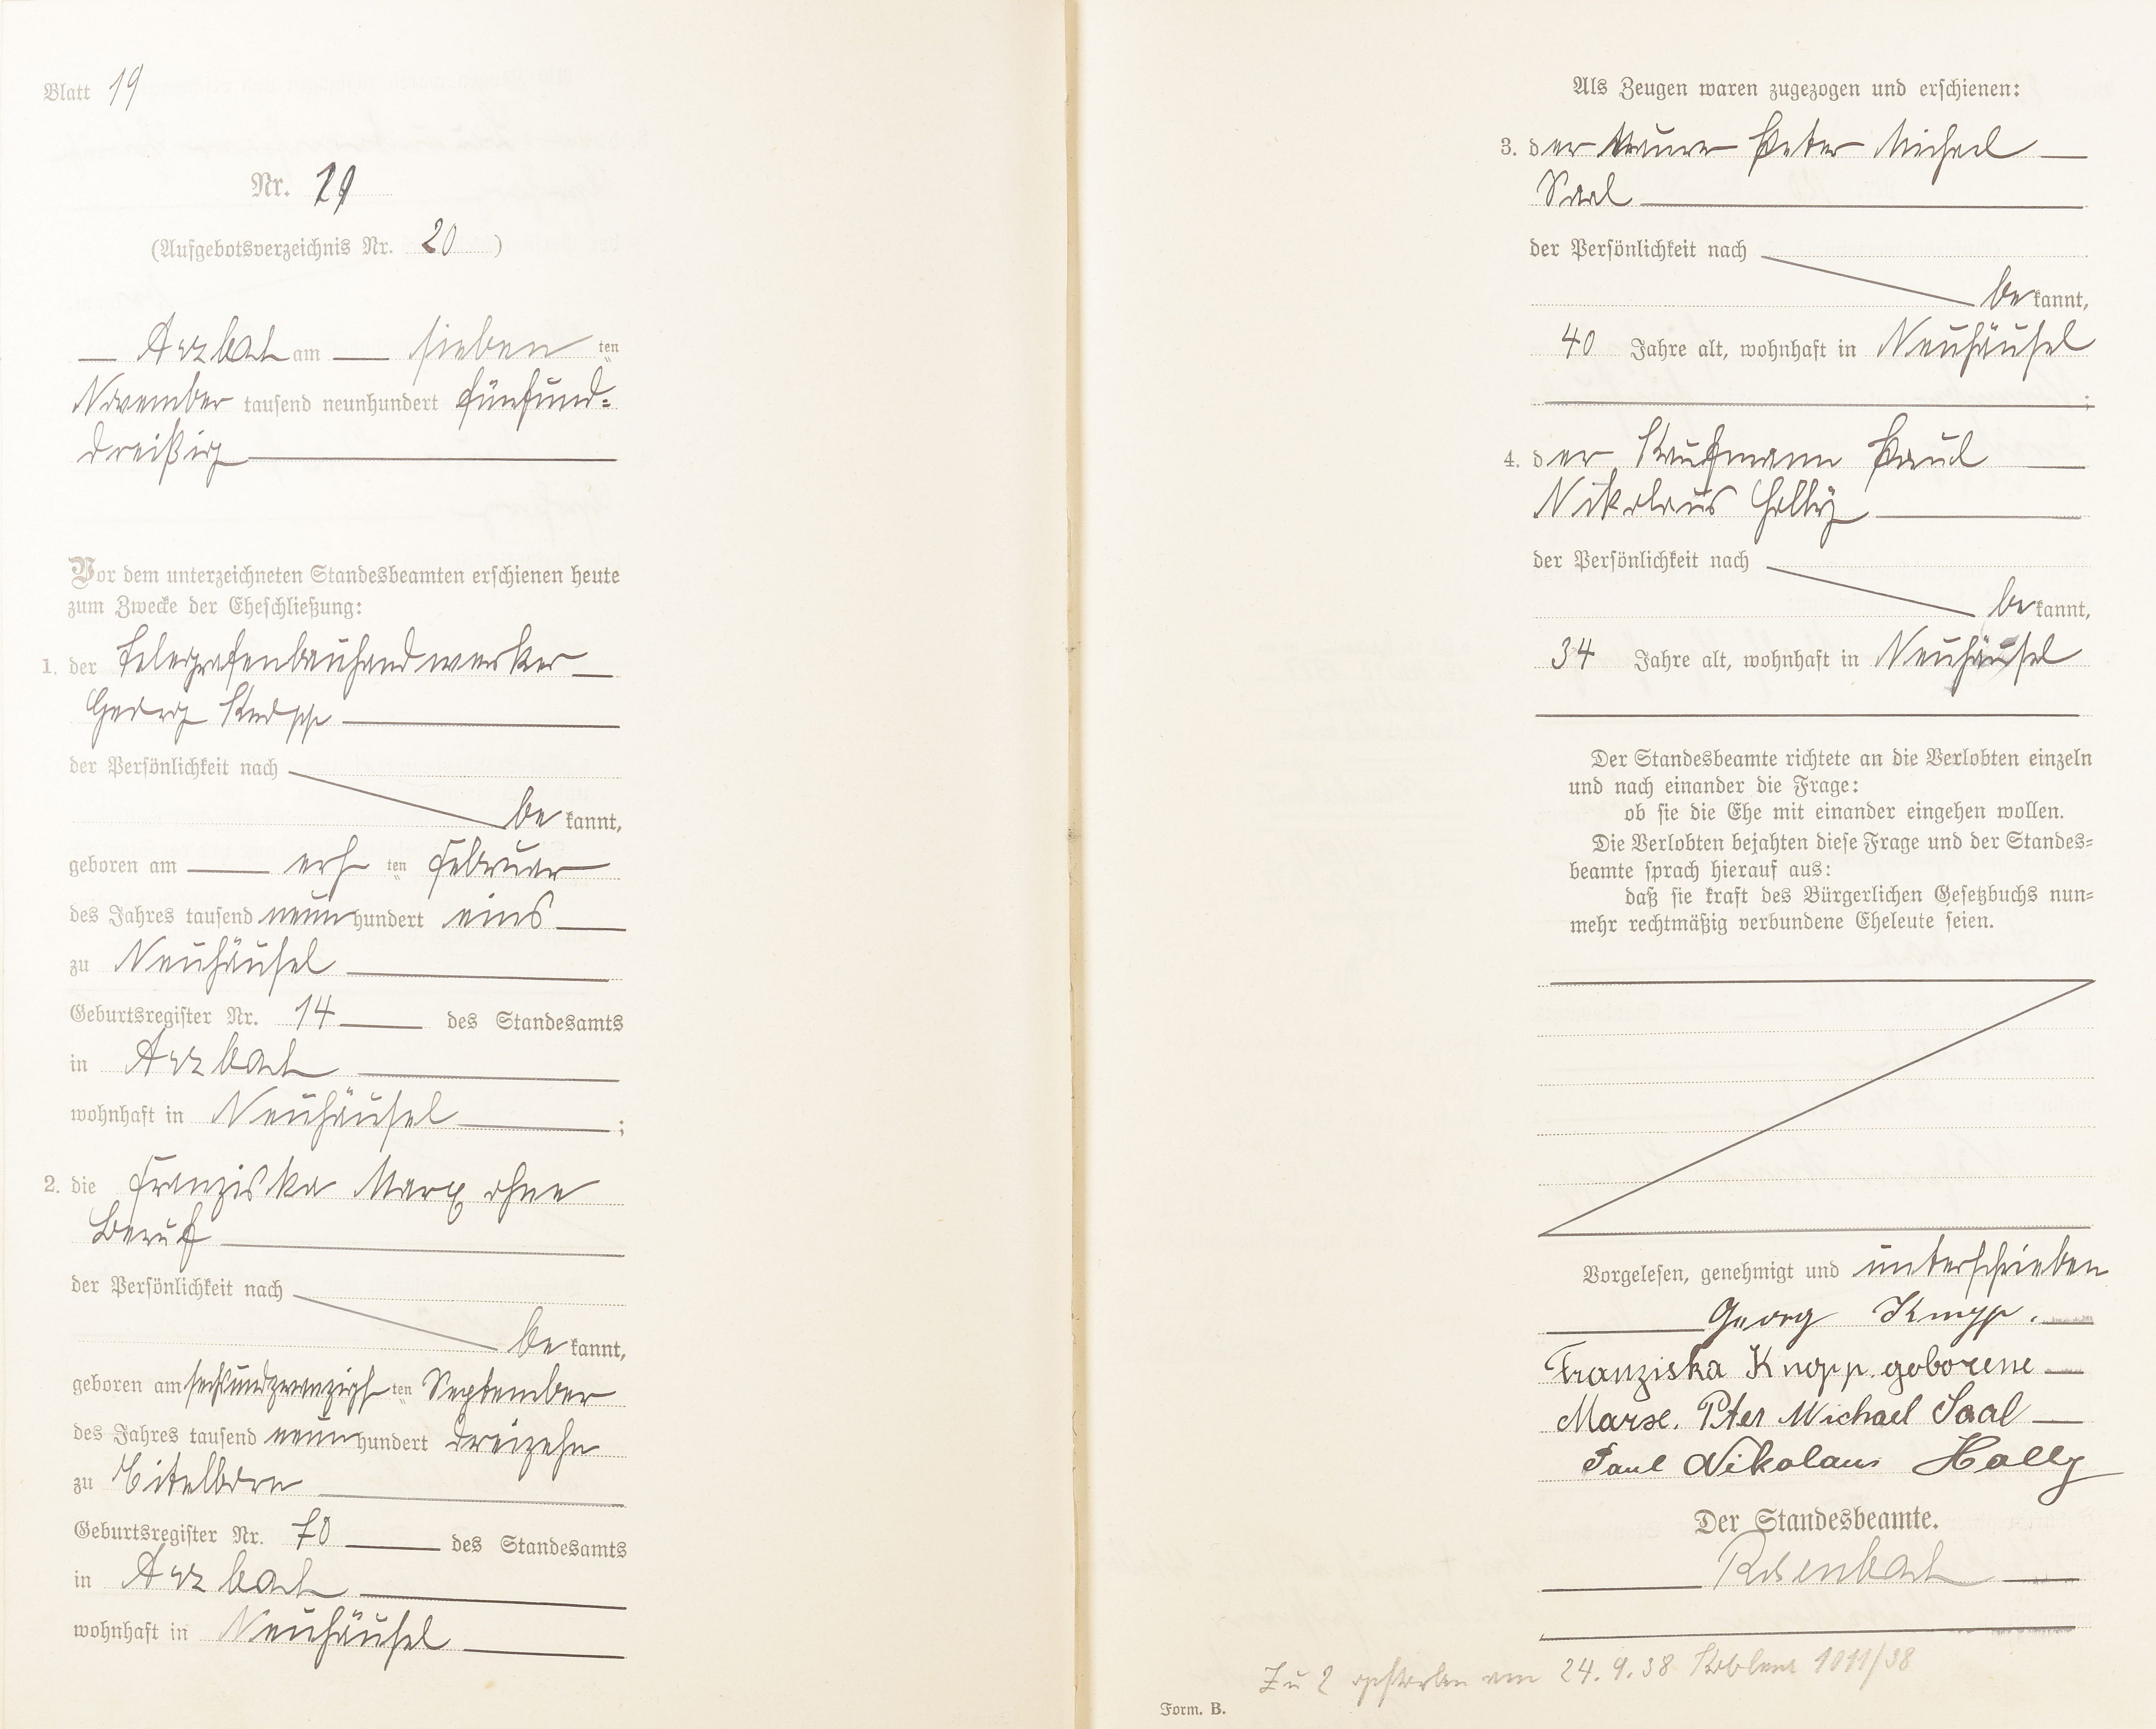 Blatt 19
Nr. 19
(Aufgebotsverzeichnis Nr. 20)
Arzbach am sieben ten
November tausend neunhundert fünfund-
dreißig
Vor dem unterzeichneten Standesbeamten erschienen heute
zum Zwecke der Eheschließung:
1. der Telegrafenbauhandwerker
Georg Knopp
der Persönlichkeit nach
be kannt,
geboren am erst ten Februar
des Jahres tausend neun hundert eins
zu Neuhäusel
Geburtsregister Nr. 14 des Standesamts
in Arzbach
wohnhaft in Neuhäusel ;
2. die Franziska Marx ohne
Beruf
der Persönlichkeit nach
be kannt,
geboren am sechsundzwanzigst ten September
des Jahres tausend neun hundert dreizehn
zu Eitelborn
Geburtsregister Nr. 70 des Standesamts
in Arzbach
wohnhaft in Neuhäusel
Als Zeugen waren zugezogen und erschienen:
3. der Maurer Peter Michael
Saal
der Persönlichkeit nach
be kannt,
40 Jahre alt, wohnhaft in Neuhäusel
;
4. der Kaufmann Paul
Nikolaus Holly
der Persönlichkeit nach
be kannt,
34 Jahre alt, wohnhaft in Neuhäusel
Der Standesbeamte richtete an die Verlobten einzeln
und nach einander die Frage:
ob sie die Ehe mit einander eingehen wollen.
Die Verlobten bejahten diese Frage und der Standes-
beamte sprach hierauf aus:
daß sie kraft des Bürgerlichen Gesetzbuchs nun-
mehr rechtmäßig verbundene Eheleute seien.
Vorgelesen, genehmigt und unterschrieben
Georg Knopp.
Franziska Knopp. geborene
Marx. Peter Michael Saal
Paul Nikolaus Holly
Der Standesbeamte.
Rosenbach
Zu 2 gestorben am 24.9.38 Koblenz 1011/38
Form. B.